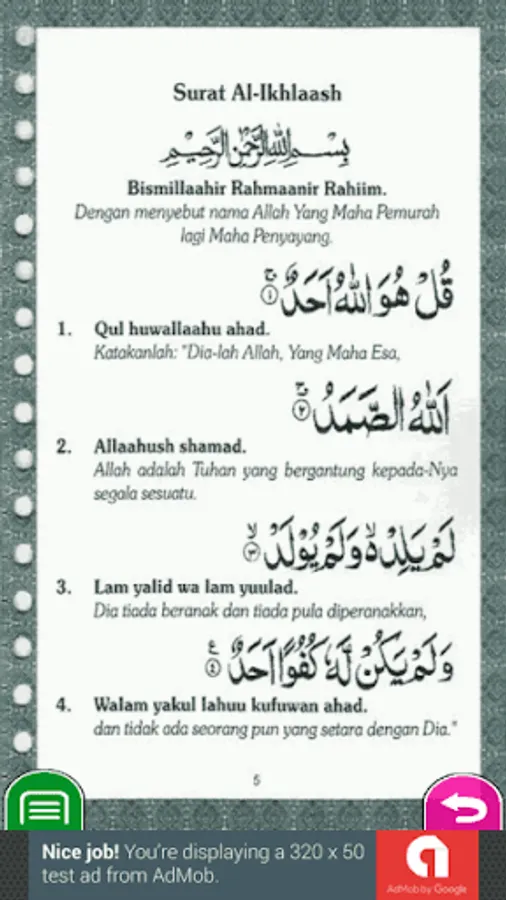 Surat Al-Ikhlaash
بِسْمِ اللهِ الرَّحْمٰنِ الرَّحِيْمِ
Bismillaahir Rahmaanir Rahiim.
Dengan menyebut nama Allah Yang Maha Pemurah
lagi Maha Penyayang.
قُلْ هُوَ اللهُ اَحَدٌ ۚ ﴿١﴾
1. Qul huwallaahu ahad.
Katakanlah: "Dia-lah Allah, Yang Maha Esa,
اَللهُ الصَّمَدُ ۚ ﴿٢﴾
2. Allaahush shamad.
Allah adalah Tuhan yang bergantung kepada-Nya
segala sesuatu.
لَمْ يَلِدْ ۙ وَلَمْ يُوْلَدْ ۙ ﴿٣﴾
3. Lam yalid wa lam yuulad.
Dia tiada beranak dan tiada pula diperanakkan,
وَلَمْ يَكُنْ لَّهٗ كُفُوًا اَحَدٌ ࣖ ﴿٤﴾
4. Walam yakul lahuu kufuwan ahad.
dan tidak ada seorang pun yang setara dengan Dia."
5
Nice job! You're displaying a 320 x 50
test ad from AdMob.
AdMob by Google